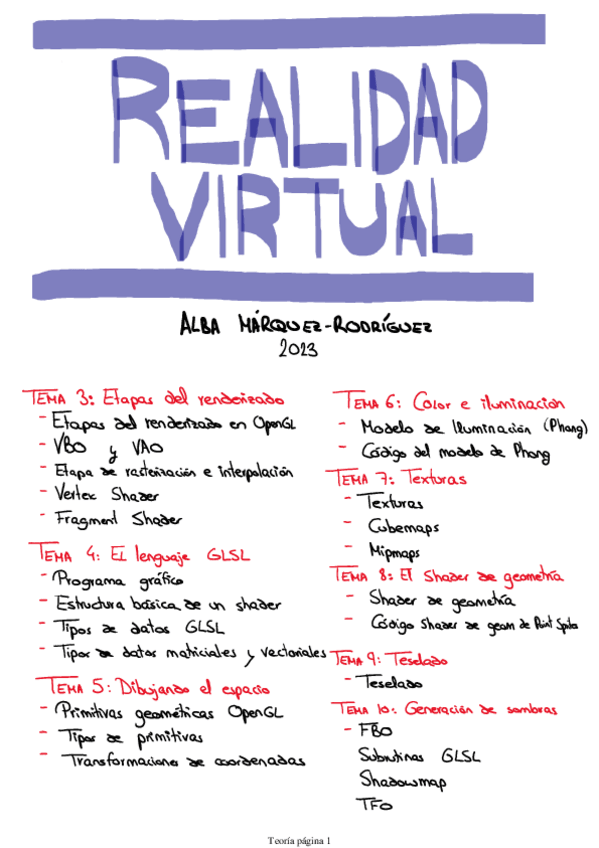 REALIDAD
VIRTUAL
ALBA MÁRQUEZ-RODRÍGUEZ
2023
TEMA 3: Etapas del renderizado
- Etapas del renderizado en OpenGL
- VBO y VAO
- Etapa de rasterización e interpolación
- Vertex Shader
- Fragment Shader
TEMA 4: El lenguaje GLSL
- Programa gráfico
- Estructura básica de un shader
- Tipos de datos GLSL
- Tipos de datos matriciales y vectoriales
TEMA 5: Dibujando el espacio
- Primitivas geométricas OpenGL
- Tipos de primitivas
- Transformaciones de coordenadas
TEMA 6: Color e iluminación
- Modelo de Iluminación (Phong)
- Código del modelo de Phong
TEMA 7: Texturas
- Texturas
- Cubemaps
- Mipmaps
TEMA 8: El Shader de geometría
- Shader de geometría
- Código Shader de geom de Point Sprites
TEMA 9: Teselado
- Teselado
TEMA 10: Generación de sombras
- FBO
Subrutinas GLSL
Shadowmap
TFO
Teoría página 1